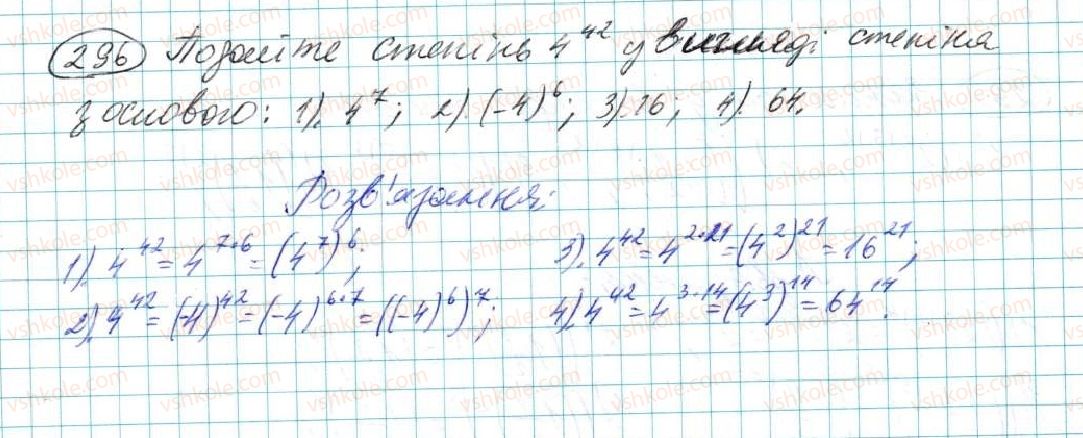 296 Подайте степінь 4^42 у вигляді степіня
з основою: 1). 4^7; 2). (-4)^6; 3). 16; 4). 64.
Розв'язання:
1). 4^42 = 4^7·6 = (4^7)^6; 3). 4^42 = 4^2·21 = (4^2)^21 = 16^21;
2). 4^42 = (-4)^42 = (-4)^6·7 = ((-4)^6)^7; 4). 4^42 = 4^3·14 = (4^3)^14 = 64^14.